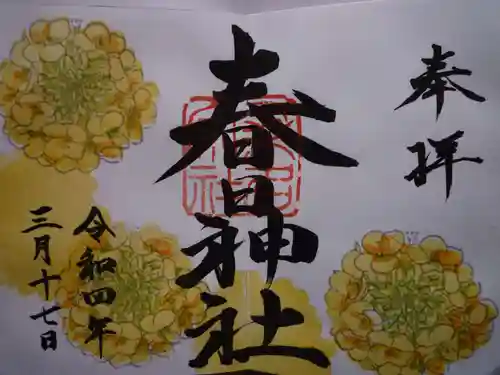 奉拝
春日神社
令和四年
三月十七日